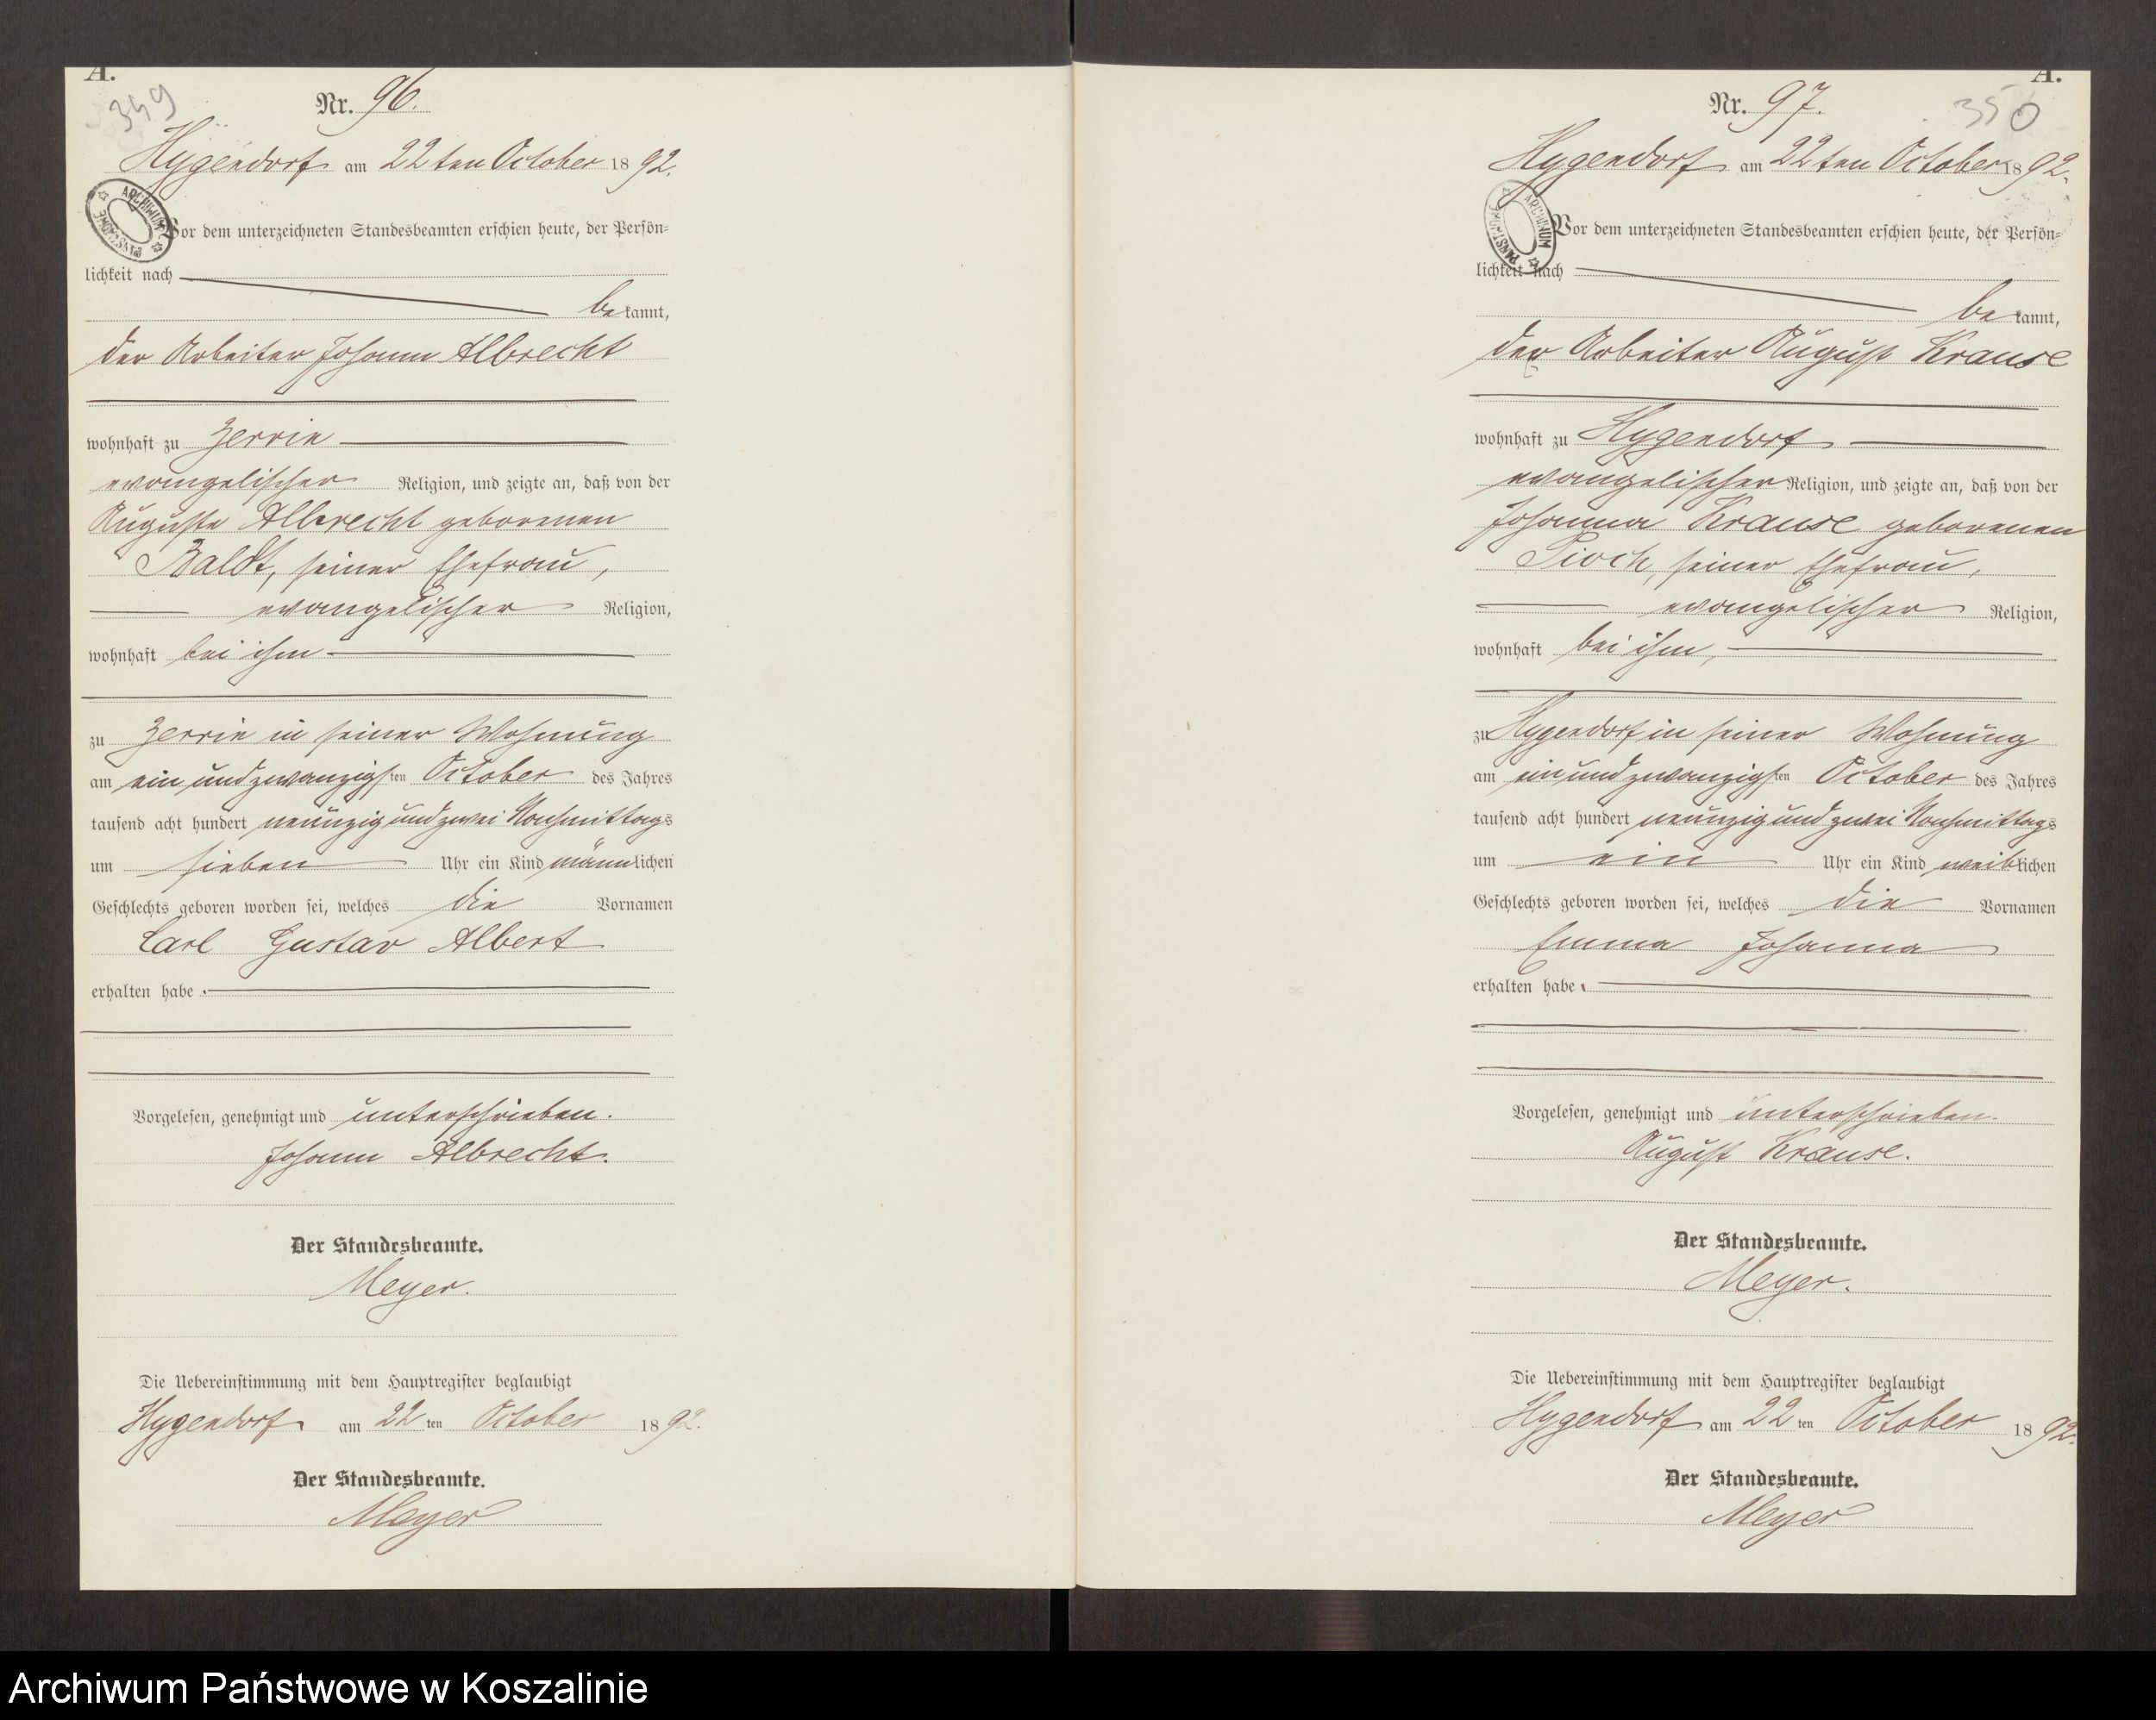 A.
349
Nr. 96.
Hygendorf am 22ten October 1892.
ARCHIWUM PAŃSTWOWE
Vor dem unterzeichneten Standesbeamten erschien heute, der Persön=
lichkeit nach
bekannt,
der Arbeiter Johann Albrecht
wohnhaft zu Zerrin
evangelischer Religion, und zeigte an, daß von der
Auguste Albrecht geborenen
Baldt, seiner Ehefrau,
evangelischer Religion,
wohnhaft bei ihm
zu Zerrin in seiner Wohnung
am ein und zwanzigsten October des Jahres
tausend acht hundert neunzig und zwei Nachmittags
um sieben Uhr ein Kind männlichen
Geschlechts geboren worden sei, welches die Vornamen
Carl Gustav Albert
erhalten habe.
Vorgelesen, genehmigt und unterschrieben.
Johann Albrecht.
Der Standesbeamte.
Meyer.
Die Uebereinstimmung mit dem Hauptregister beglaubigt
Hygendorf am 22ten October 1892.
Der Standesbeamte.
Meyer
A.
350
Nr. 97.
Hygendorf am 22ten October 1892.
ARCHIWUM PAŃSTWOWE
Vor dem unterzeichneten Standesbeamten erschien heute, der Persön=
lichkeit nach
bekannt,
der Arbeiter August Krause
wohnhaft zu Hygendorf
evangelischer Religion, und zeigte an, daß von der
Johanna Krause geborenen
Pioch, seiner Ehefrau,
evangelischer Religion,
wohnhaft bei ihm,
zu Hygendorf in seiner Wohnung
am ein und zwanzigsten October des Jahres
tausend acht hundert neunzig und zwei Nachmittags
um ein Uhr ein Kind weiblichen
Geschlechts geboren worden sei, welches die Vornamen
Emma Johanna
erhalten habe.
Vorgelesen, genehmigt und unterschrieben.
August Krause.
Der Standesbeamte.
Meyer.
Die Uebereinstimmung mit dem Hauptregister beglaubigt
Hygendorf am 22ten October 1892.
Der Standesbeamte.
Meyer
Archiwum Państwowe w Koszalinie